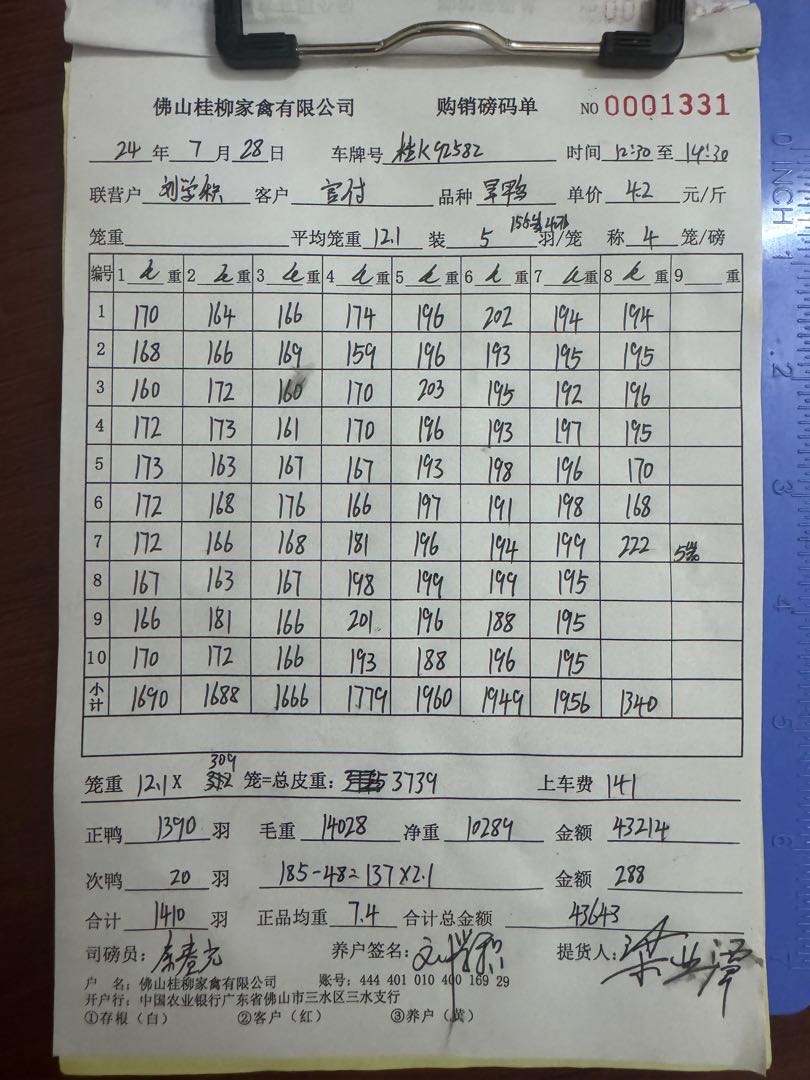 佛山桂柳家禽有限公司 购销磅码单 NO 0001331
24 年 7 月 28 日 车牌号 桂K92582 时间 12:30 至 14:30
联营户 刘学积 客户 官付 品种 旱鸭 单价 4.2 元/斤
笼重 平均笼重 12.1 装 5 羽/笼 称 4 笼/磅
编号 1 毛 重 2 毛 重 3 毛 重 4 毛 重 5 毛 重 6 毛 重 7 毛 重 8 毛 重 9 重
1 170 164 166 174 196 202 194 194
2 168 166 169 159 196 193 195 195
3 160 172 160 170 203 195 192 196
4 172 173 161 170 196 193 197 195
5 173 163 167 167 193 198 196 170
6 172 168 176 166 197 191 198 168
7 172 166 168 181 196 194 199 222 5笼
8 167 163 167 198 199 199 195
9 166 181 166 201 196 188 195
10 170 172 166 193 188 196 195
小计 1690 1688 1666 1779 1960 1949 1956 1340
309
笼重 12.1 X 笼=总皮重: 3739 上车费 141
正鸭 1390 羽 毛重 14028 净重 10289 金额 43214
次鸭 20 羽 185-48=137X2.1 金额 288
合计 1410 羽 正品均重 7.4 合计总金额 43643
司磅员: 养户签名: 刘学积 提货人:
户 名: 佛山桂柳家禽有限公司 账号: 444 401 010 400 169 29
开户行: 中国农业银行广东省佛山市三水区三水支行
①存根(白) ②客户(红) ③养户(黄)